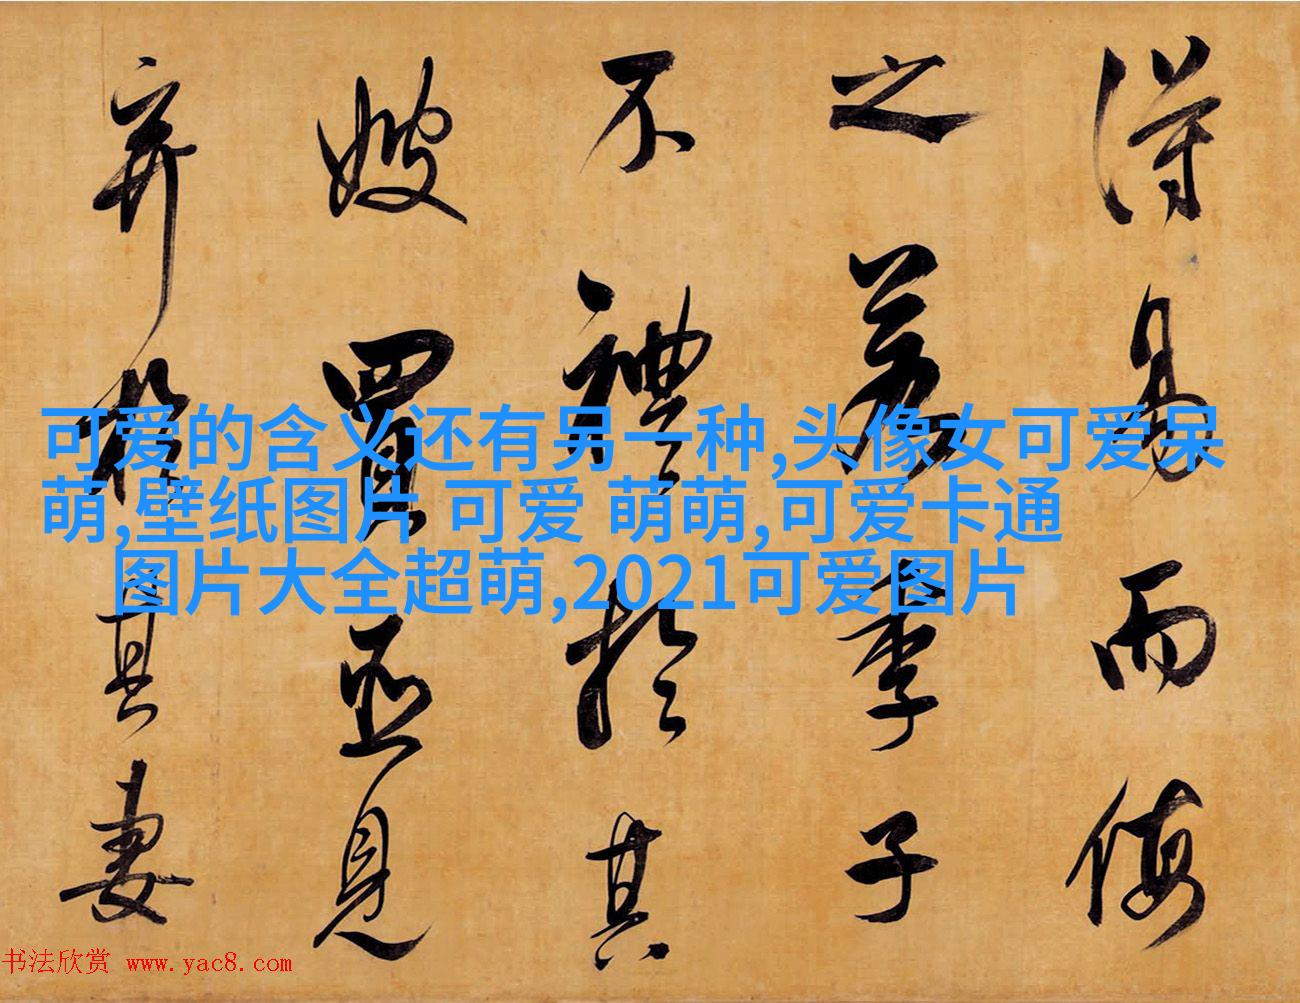 得易而侮
之若季子
不禮於其
嫂買臣見
棄於其妻
可爱的含义还有另一种,头像女可爱呆
萌,壁纸图片 可爱 萌萌,可爱卡通
图片大全超萌,2021可爱图片
书法欣赏 www.yac8.com